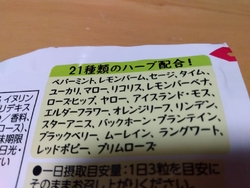 21種類のハーブ配合!
ペパーミント、レモンバーム、セージ、タイム、
ユーカリ、マロー、リコリス、レモンバーベナ、
ローズヒップ、ヤロー、アイスランド・モス、
エルダーフラワー、オレンジリーフ、リンデン、
スターアニス、バックホーン・プランテイン、
ブラックベリー、ムーレイン、ラングワート、
レッドポピー、プリムローズ
●一日摂取目安量:1日3粒を目安に
そのままお召し上がりください。
イヌリン
リデキス
/香料、
ロース)、
味期限
日光・